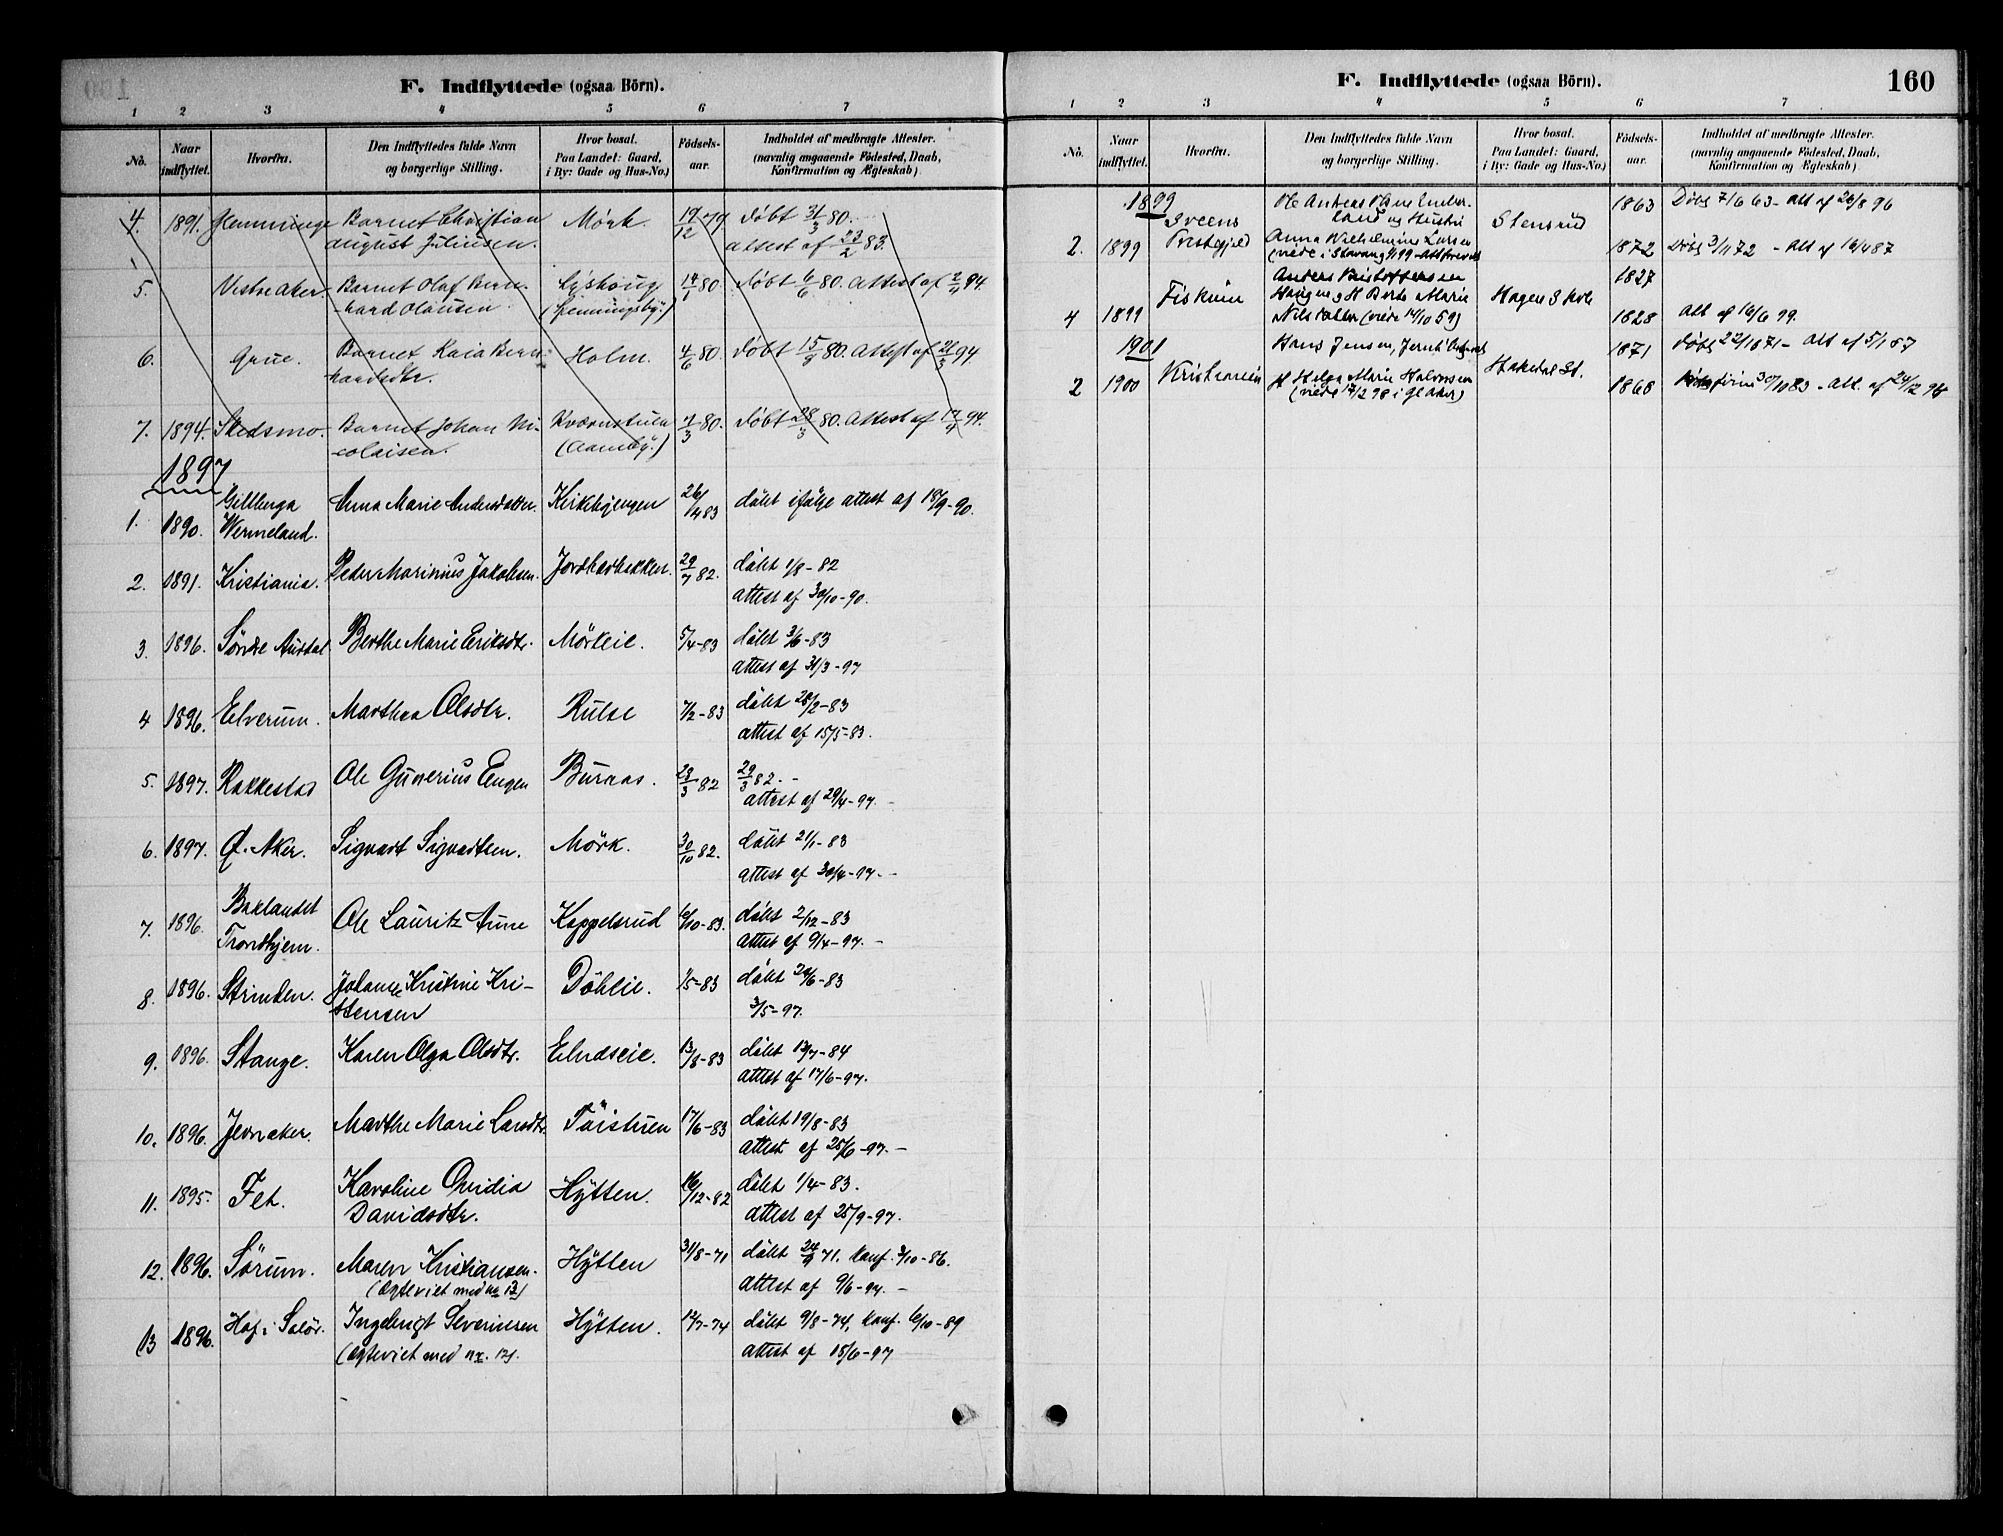 F. Indflyttede (ogsaa Börn).
1 2 3 4 5 6 7
No. Naar indflyttet. Hvorfra. Den Indflyttedes fulde Navn og borgerlige Stilling. Hvor bosat. Paa Landet: Gaard, i By: Gade og Hus-No.) Födsels-aar. Indholdet af medbragte Attester. (navnlig angaaende Födested, Daab, Konfirmation og Ægteskab)
4. 1891. Hemminge Barnet Christian Mörk. 19/12 79. döbt 31/3 80.
august Juliusen. attest af 23/2 83.
5. Vestre Aker. Barnet Olaf Bern- 14/1 80 döbt 6/6 80. attest af 94.
hard Olausen.
6. Grue. Barnet Kaia Bern- Holm. 4/6 80. döbt 15/8 80. Attest af 21/3 94.
hardsdtr.
7. 1894. Skedsmo. Barnet Johan Ni- Kværnstuen 7/3 80. döbt 28/3 80. Attest af 94.
colaisen. (Aamby.)
1897
Gillberga Anna Marie Andersdatter. Kirkebyengen 26/4 83 döbt ifölge attest af 18/9-90.
1. 1890. Wermeland.
2. 1891. Kristiania. Peder Marinius Jakobsen. Jordbærbakken. 29/7 82. döbt 1/8-82
attest af 30/10-90.
3. 1896. Söndre Aurdal Berthe Marie Eriksdtr. Mörkeie. 5/4-83 döbt 3/6-83
attest af 31/3-97
4 1896. Elverum. Marthea Olsdtr. 7/2-83 döbt 28/2-83
attest af 15/5-83.
5. 1897. Rakkestad Ole Gunerius Eugen Buraas. 23/3 82 29/3 82.-
attest af 29/4-97.-
6. 1897. Ö. Aker. Sigvart Sigvartsen. Mörk. 30/10 82. döbt 21/1-83
attest af 30/4-97.-
7. 1896. Baklandet Ole Lauritz Aune Kappelsrud 10-83. döbt 2/12-83
Trondhjem. attest af 9/4-97.-
8. 1896. Strinden. Johanne Kristine Kri- Döhlie. 1/5-83 döbt 24/6-83
stensen 3/5-97.
9. 1896. Stange. Karen Olga Olsdtr. 13/8-83 döbt 13/7-84
attest af 17/6-97.
10. 1896. Jevnaker. Marthe Marie Larsdtr. Töistuen 17/6-83 döbt 19/8-83
attest af 25/6-97.-
11. 1895. Fet. Karoline Ovidia Hÿtten. 16/12-82 döbt 1/4-83.
Davidsdtr. attest af 25/9-97.
12. 1896. Sörum. Maren Kristiansen. Hÿtten 31/8-71 döbt 24/9 71. konf. 3/10-86.
(ægteviet med no 13) attest af 9/6-97.-
13 1896. Hof i Solör. Ingebrigt Severinsen Hÿtten. 12/7-74 döbt 9/8-74, konf. 6/10-89
(ægteviet med nr. 12). attest af 15/6-97
F. Indflyttede (ogsaa Börn). 160
1 2 3 4 5 6 7
No. Naar indflyttet. Hvorfra. Den Indflyttedes fulde Navn og borgerlige Stilling. Hvor bosat. Paa Landet: Gaard, i By: Gade og Hus-No.) Födsels-aar. Indholdet af medbragte Attester. (navnlig angaaende Födested, Daab, Konfirmation og Ægteskab)
1899 Ole Andreas 1863 Döbt 7/6 63 - Att af 26/8 96
Sveens land og Hustru Stensrud
2. 1899 Prestegjeld Anna Wilhelmine Larsen 1872 Döbt 3/11 72 - Att af 16/4 87
Anders Kristoffersen 1827
Fiskum Haugen og H Berte Marie Hagen S Kole
4 1899 Nilsdatter (viede 14/10 59) 1828 Att af 16/6 99.
1901 Hans Jensen, 1871 Döbt 22/1 871 - Att af 5/1 87
Kristiania Hakedal St.
2 1900 H Helga Marie Halvorsen 1868 30/10 83 - Att. af 24/12 98
(viede 17/2 98 i Gl Aker)